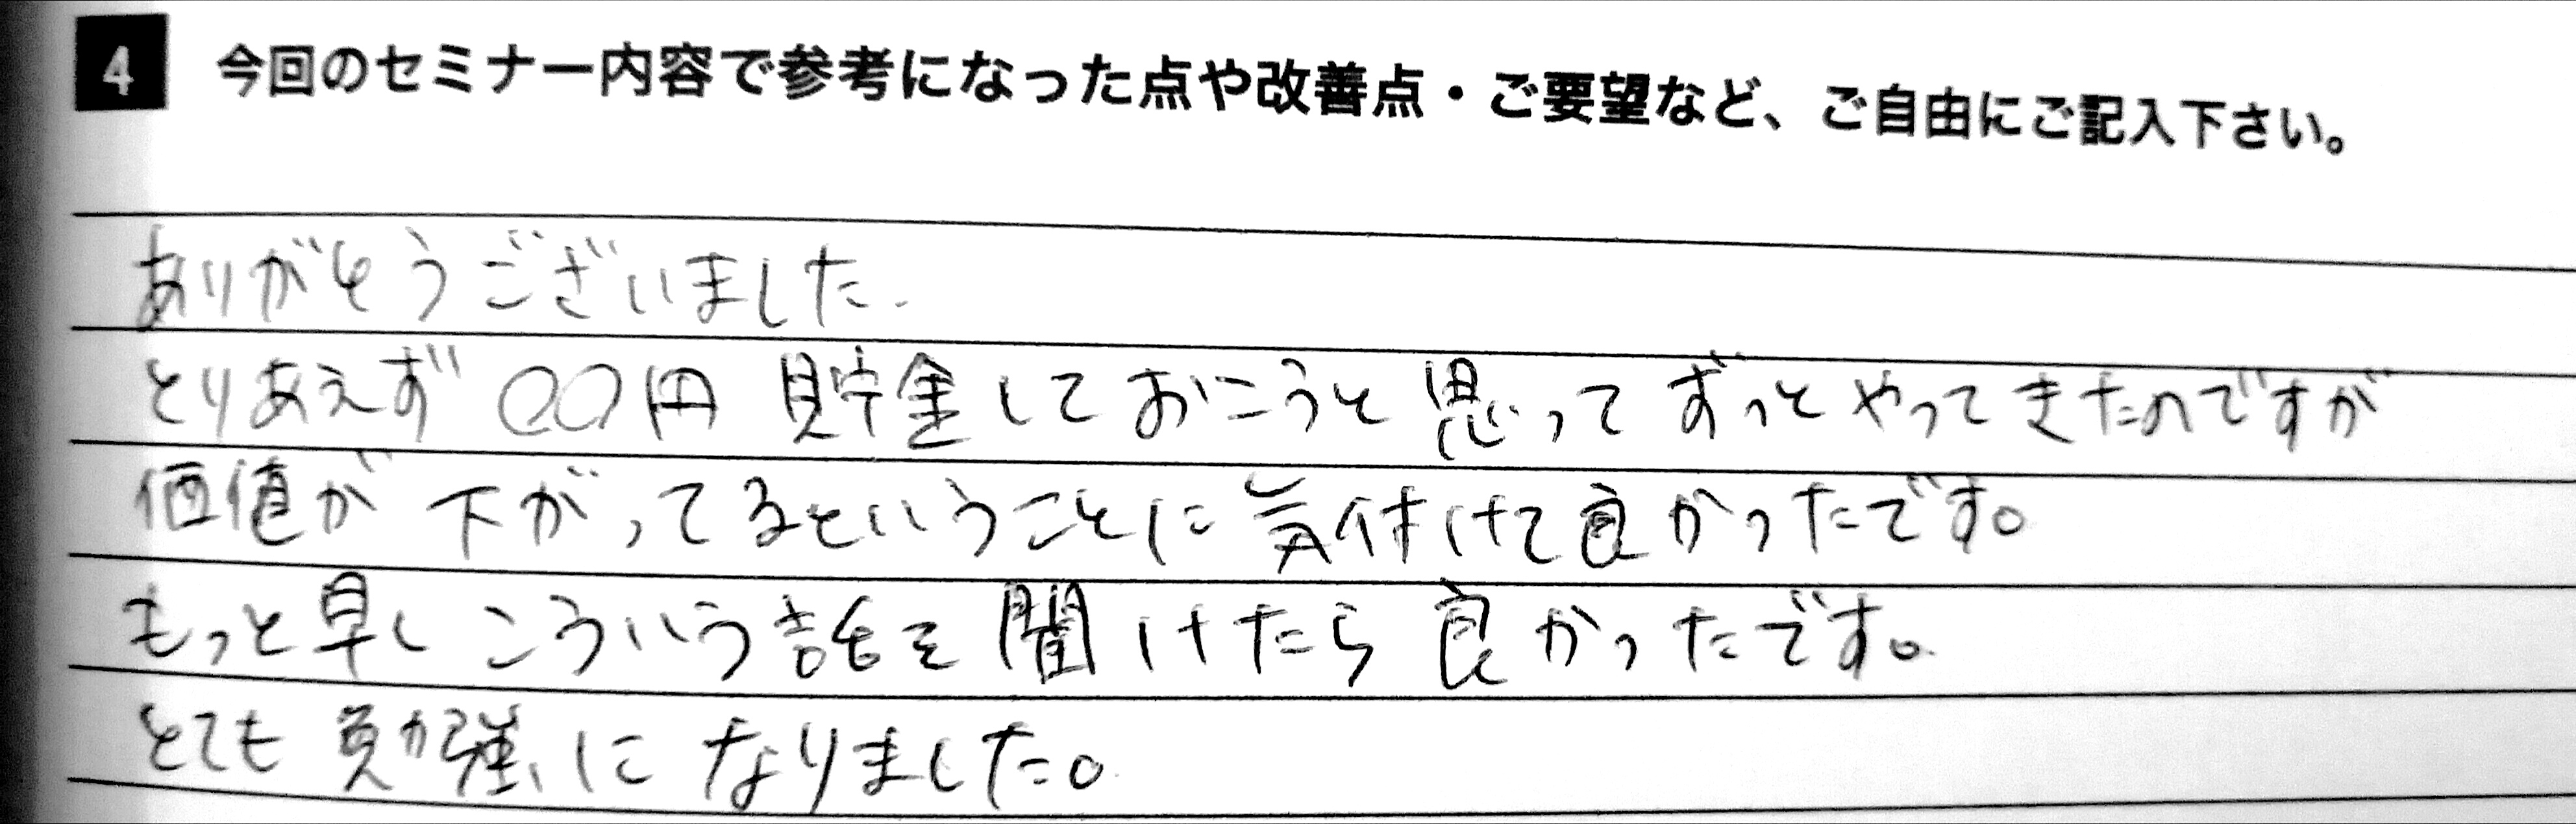 4 今回のセミナー内容で参考になった点や改善点・ご要望など、ご自由にご記入下さい。
ありがとうございました.
とりあえず〇〇円貯金しておこうと思ってずっとやってきたのですが
価値が下がってるということに気付けて良かったです。
もっと早くこういう話を聞けたら良かったです。
とても勉強になりました。